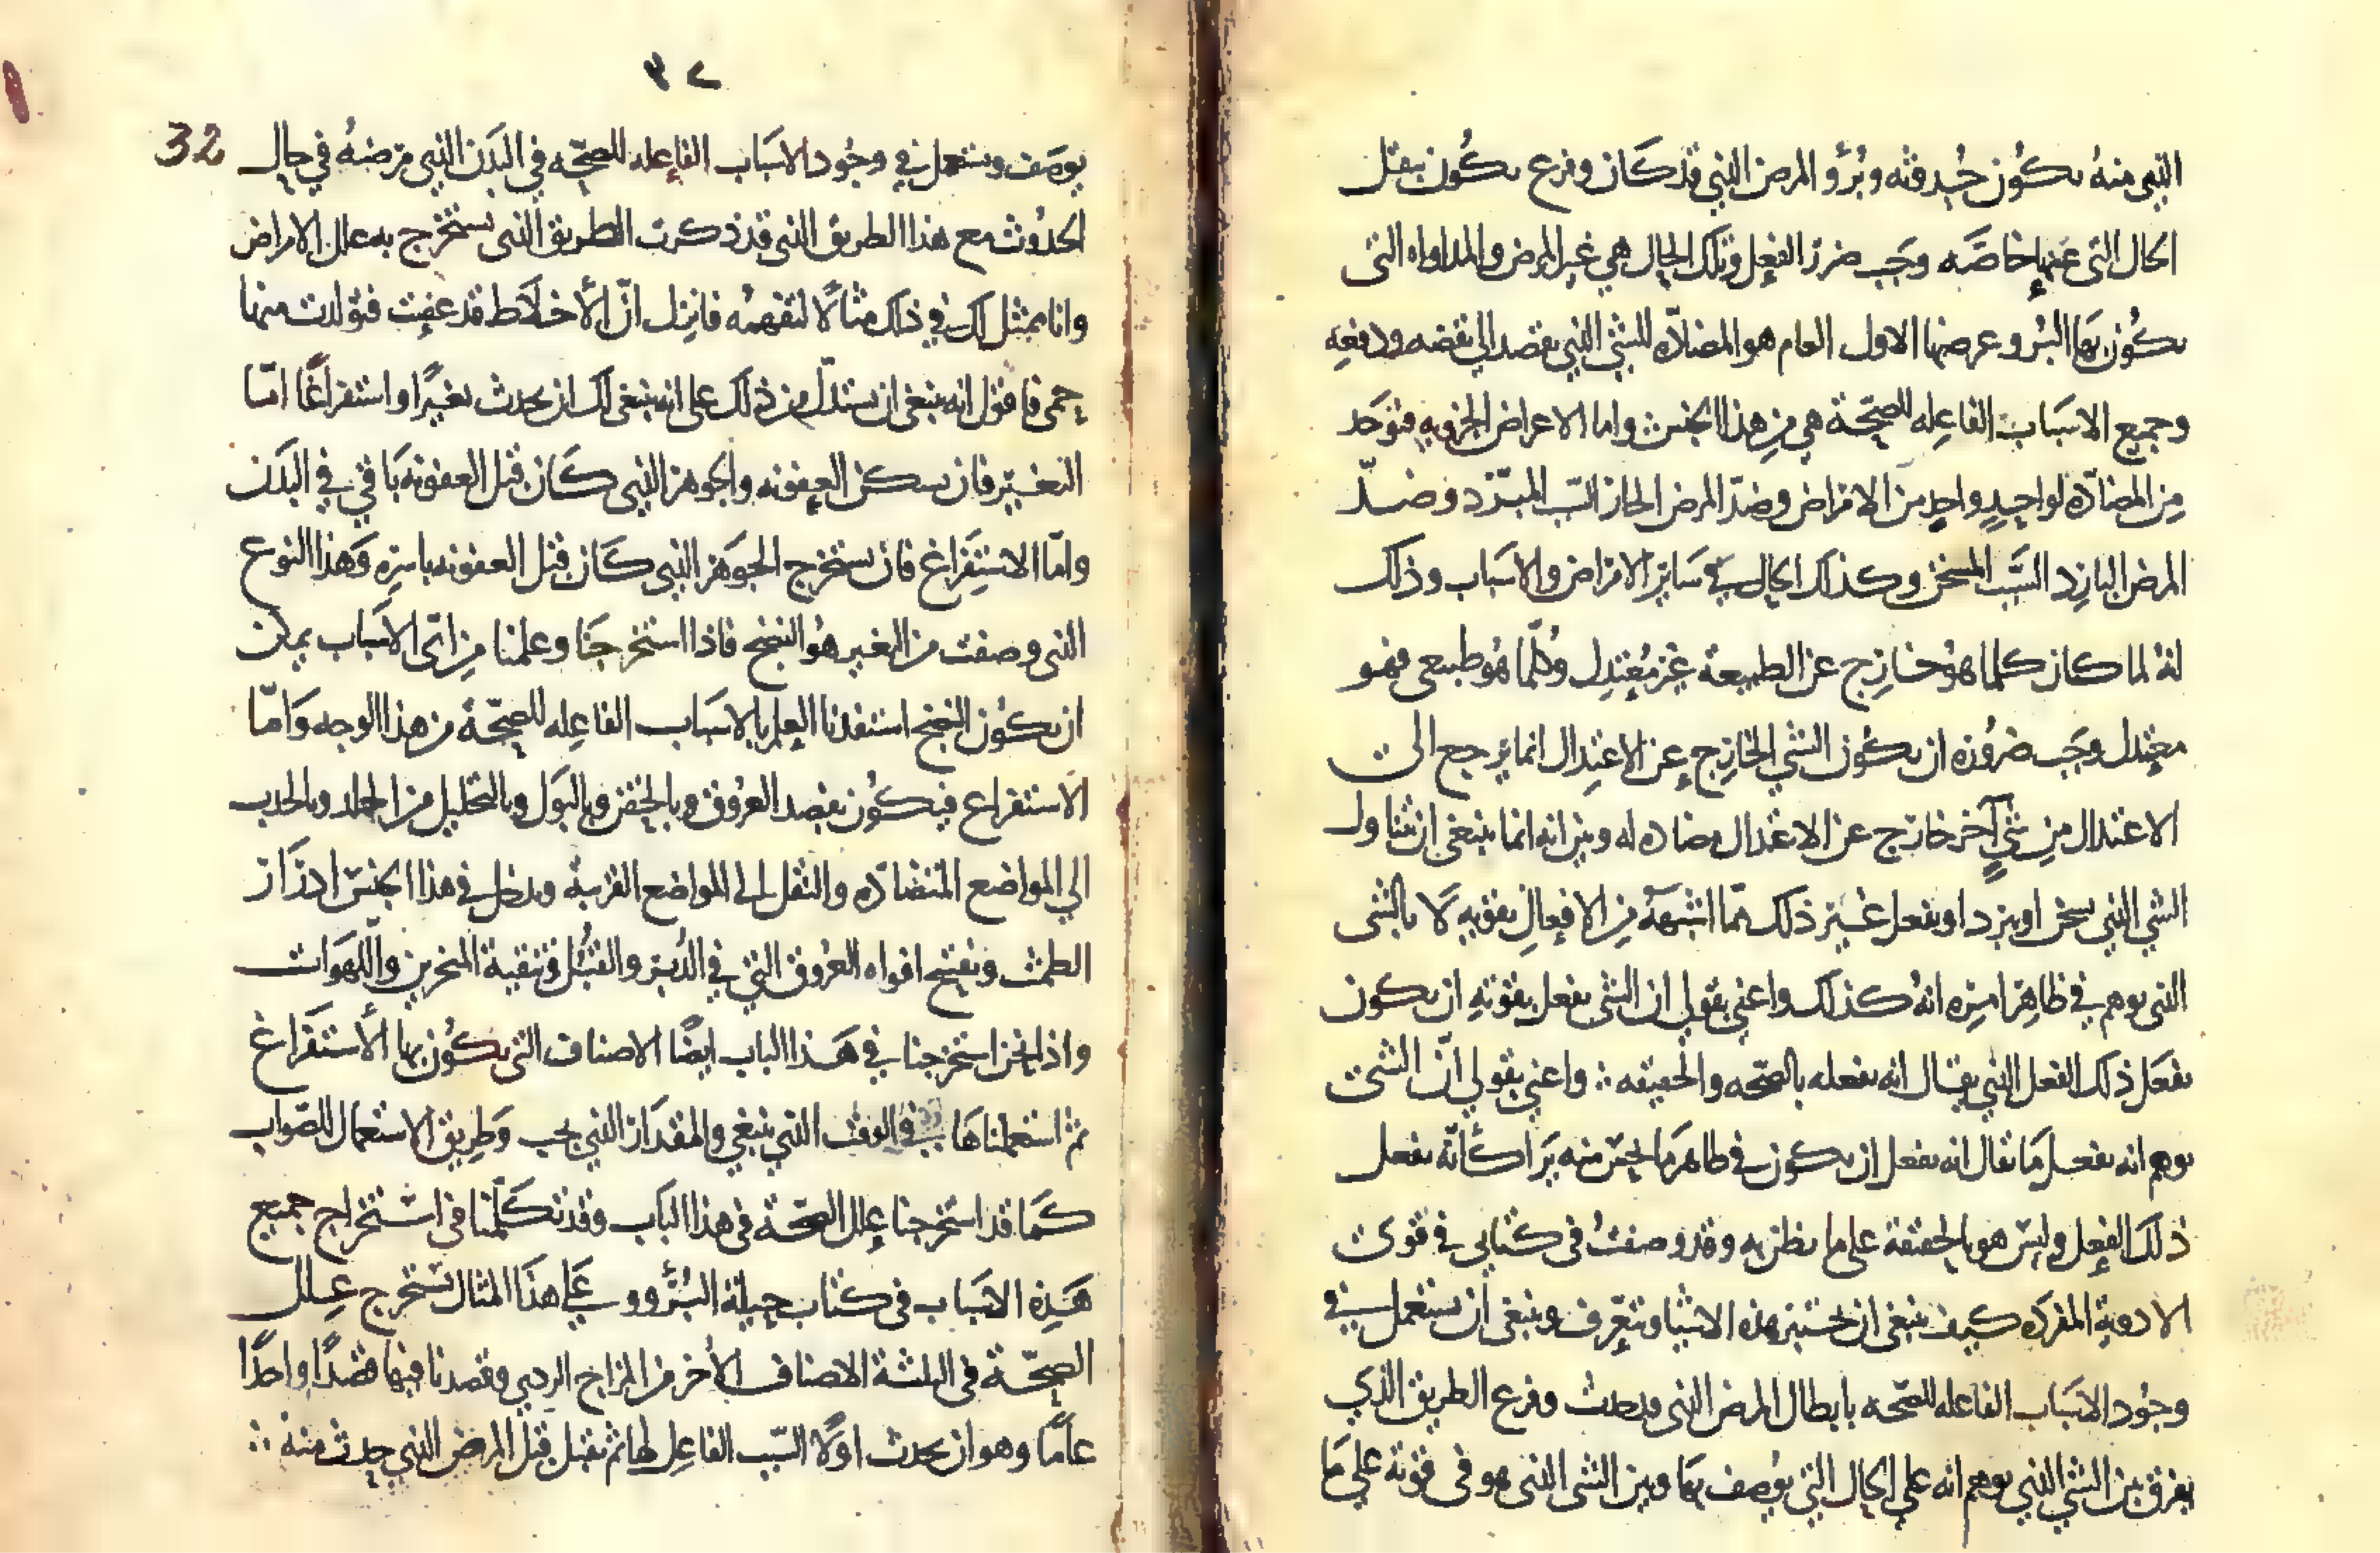 الذي منه يكون حُدوثه وبُرؤ المرض الذي قد كان وفرغ يكون بنقل
الحال التي عنها خاصّه وجَب ضرر الفعل وتلك الحال هي غير المرض والمداواه التى
يكون بها البُرو عرضها الاول العام هو المضادّه للشي الذي يقصد الى نقضه ودفعِه
وجميع الاسبَاب الفاعِله للصحّة هي مِن هذا الجنس واما الاعراض الجزويه فتوجَد
مِن المضادّه لواحِدٍ واحِدٍ من الامراض وضدّ المرض الحار السَبب المبرّد وضدّ
المرض البارِد السَّبب المسخن وكذلك الحال في سَاير الامراض والاسباب وذلك
انهُ لما كان كلما هوُ خارِج عن الطبيعة غير مُعتدِل وكُلّما هُو طبيعى فهو
معتِدل وجَب ضرُورة ان يكوُن الشي الخارِج عن الاعتِدال انما يرجع الى
الاعتدال مِن شيٍ آخر خارج عن الاعتدال مضاده له وبين انه انما ينبغى ان يتناول
الشي الذي يسخن او يبرد او يفعل غير ذلك ممّا اشبههُ مِن الافعالِ بقوّتهِ لا بالشى
الذي يوهم في ظاهر امرِه انهُ كذلك واعني بقولي ان الشى يفعل بقوّتهِ ان يكون
يفعَل ذلك الفعل الذي يقال انه يفعله بالصحّه والحقيقه ∴ واعني بقولي انّ الشى
يوهم انه يفعل مَا يقال انه يفعل ان يكون في ظاهر مَا يحسّ منه يَراك كأنّه يفعل
ذلك الفِعل وليس هو بالحقيقة على ما يظنّ به وقد وصفتُ فى كتابى في قوى
الادويةِ المفردَه كيف ينبغى ان تختبر هذه الاشيا وتتعَرّف وينبغى أن يستعمل في
وجُود الاسبَاب الفاعله للصّحه بابطال المرض الذى قد حدث وفرغ الطريق الذي
يفرق بين الشي الذي يوهم انه على الحال التي يوُصف بهَا وبين الشى الذى هو فى قوته على مَا
٣٢
32
يوصَف ويستعمل في وجُود الاسبَاب الفاعِله للصحّه في البَدن الذي مرضهُ في حال
الحدُوث مع هذا الطريق الذي قد ذكرت الطريق الذى يستخرج به علل الامراض
وانا ممثل لك في ذلك مثالًا لتفهمه فانزِل انّ الأخلَاط قد عفِنت فتولدت منها
حمى فاقول انه ينبغى ان يستدلّ من ذلك على انه ينبغى لك ان يحدث تغييرًا واستفراغًا امّا
التغيّير فان يسكن العفونه والجوهر الذي كان قبل العفونه بَاقي في البَدن
وامّا الاستِفراغ فان يستخرج الجَوهر الذي كان قبل العفونه باسرِه وَهذا النوع
الذى وصفت من التغيير هوُ النضج فاذا استخرجنَا وعلمنا مِن ايّ الاسباب يمكن
ان يكوُن النضج استفدنا العلم بالاسبَاب الفاعِله للصحّة من هذا الوجه وَامّا
الاستفراغ فيَكوُن بفصد العرُوق وبالحقن وبالبَول وبالتحليل من الجلد وبالجذب
الي المواضع المتضادّه والنقل الى المواضع القريبة ويدخل في هذا الجنس ادرَار
الطمث وتفتيح افواه العرُوق التي في الدُبر والقبُل وتنقية المنخرين واللّهوَات
واذا نحن استخرجنا في هَذا الباب ايضًا الاصناف التى يكوُن بها الأستفراغ
ثم استعملناهَا في الوقت الذي ينبغي والمقدَار الذي يجب وَطريق الاستعمال للصّواب
كمَا قد استخرجنا عِلل الصّحّة فى هذا البَاب وقد تكلّمنا فى استخراج جميع
هَذِه الاسبَاب فى كتاب حيلة البُرؤ وعلى هذَا المثال تستخرج عِلل
الصحّة فى الثلثة الاصناف الأخر من المزاج الردي وقصدنا فيها قصدًا واحدًا
عامّا وهو ان يحدث اوّلًا السّبب الفاعِل لها ثم يقبل قبل المرض الذي حدث منهُ ∴